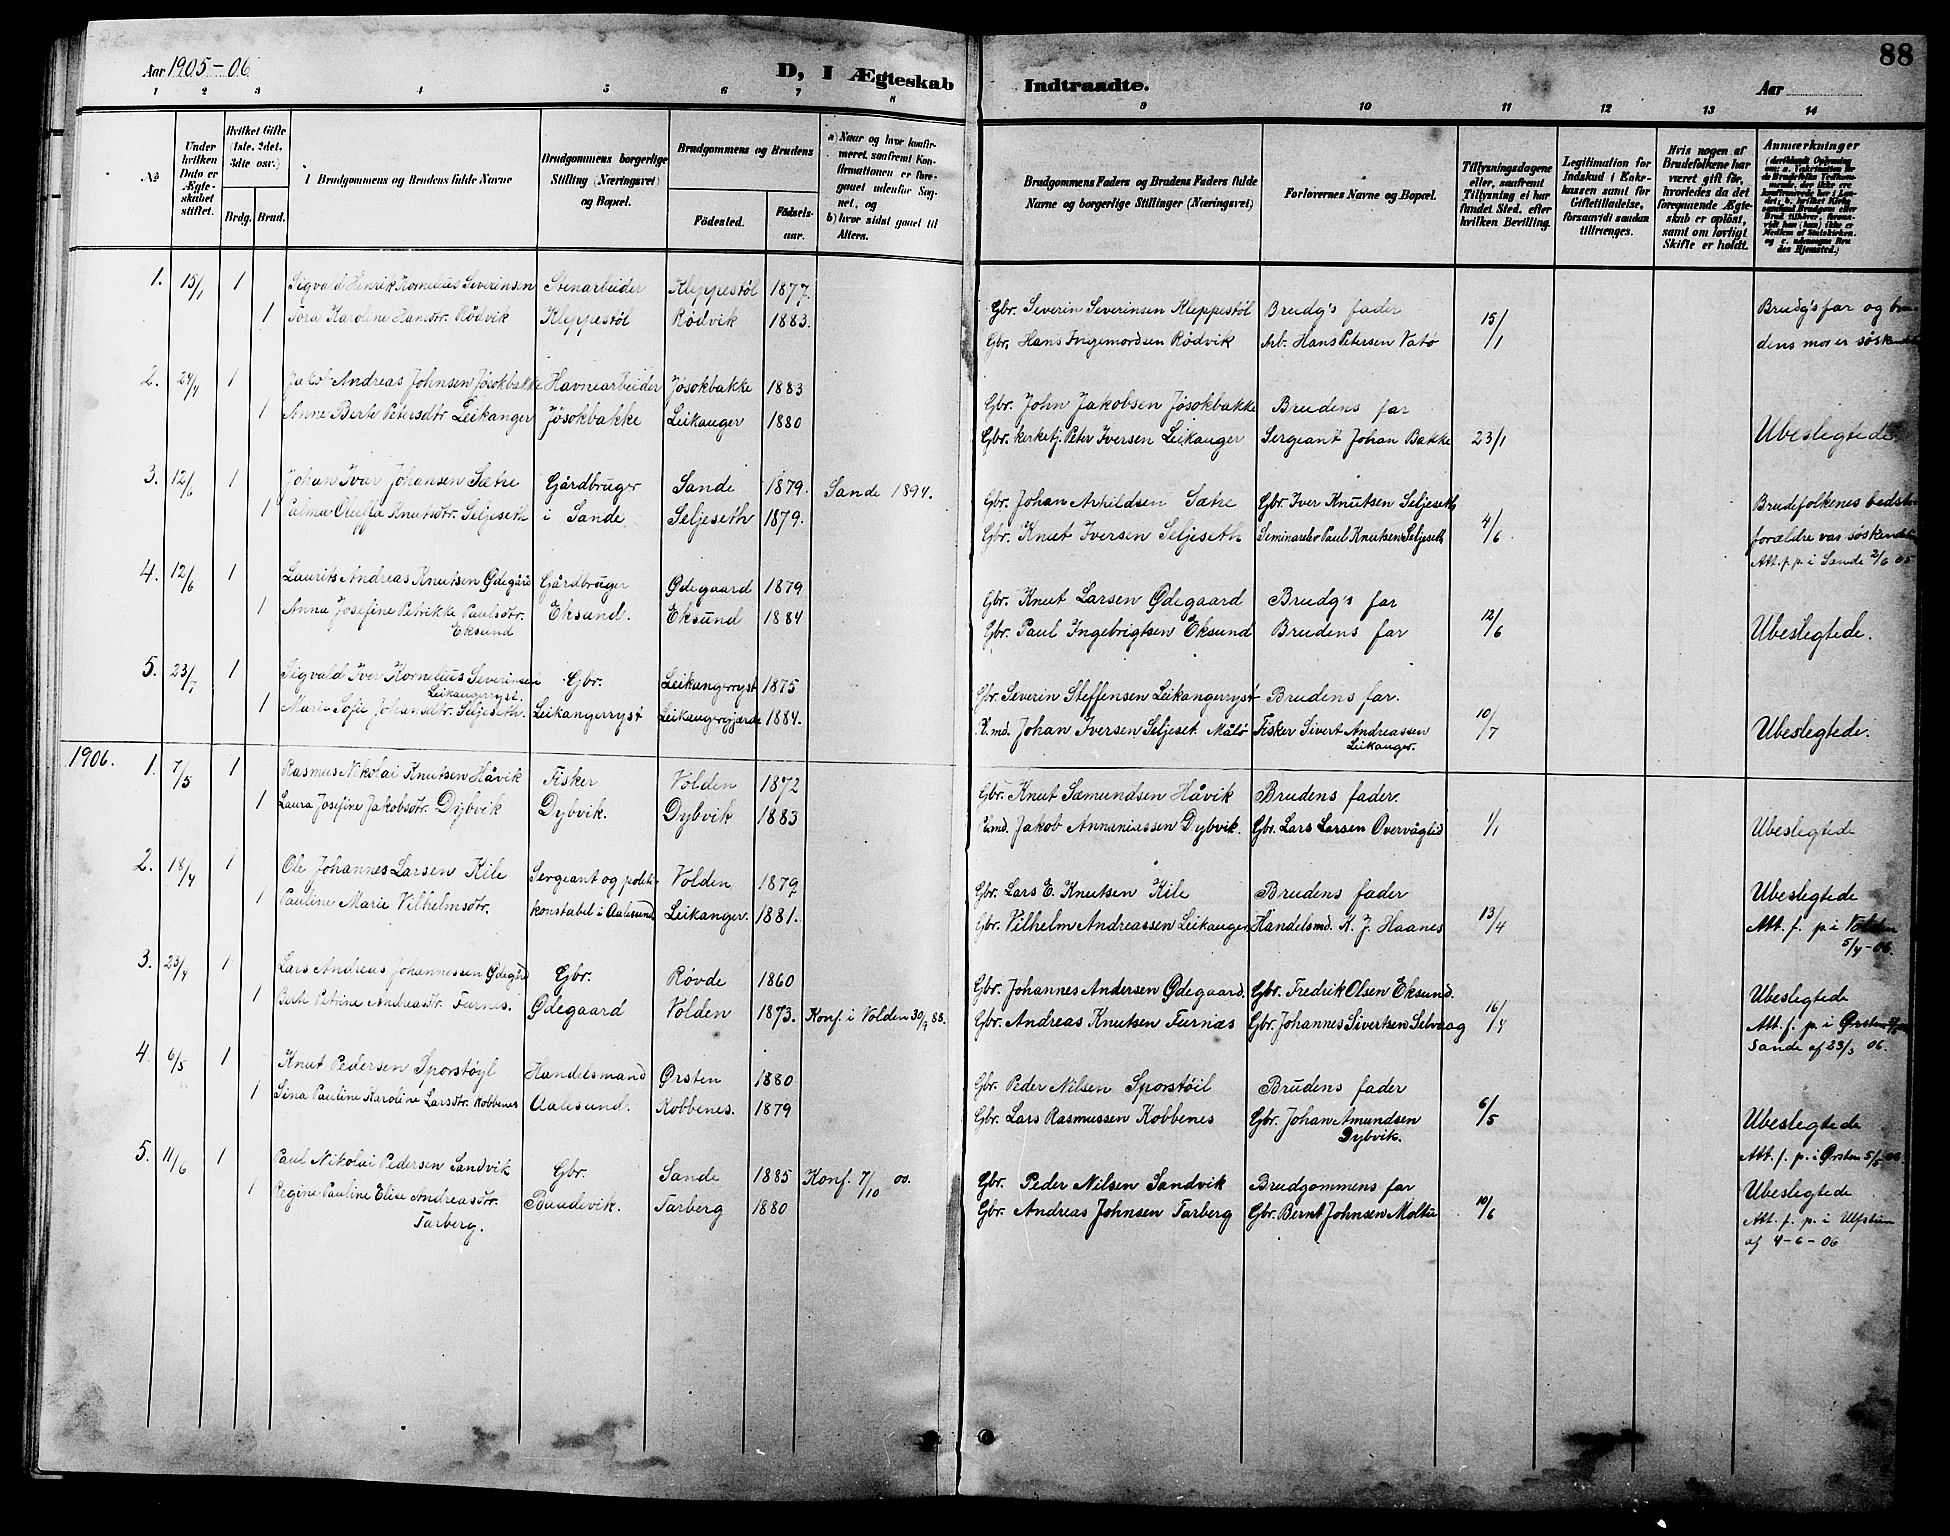 Aar 1905-06
D, I Ægteskab
Indtraadte.
Aar
88
1 2 3 4 5 6 7 8 9 10 11 12 13 14
№
Under hvilken Dato er Ægteskabet stiftet.
Hvilket Gifte (1ste, 2det, 3die osv.)
Brdg. Brud.
Brudgommens og Brudens fulde Navne
Brudgommens borgerlige Stilling (Næringsvei) og Bopæl.
Brudgommens og Brudens
Fødested.
Fødselsaar.
a) Naar og hvor konfirmeret, saafremt Konfirmationen er foregaaet udenfor Sognet, og
b) hvor sidst gaaet til Alters.
Brudgommens Faders og Brudens Faders fulde Navne og borgerlige Stillinger (Næringsvei)
Forlovernes Navne og Bopæl.
Tillysningsdagene eller, saafremt Tillysning ei har fundet Sted, efter hvilken Bevilling.
Legitimation for Indskud i Enkekassen samt for Giftetilladelse, forsaavidt saadan tiltrænges.
Hvis nogen af Brudefolkene har været gift før, hvorledes da det foregaaende Ægteskab er opløst, samt om lovligt Skifte er holdt.
Anmærkninger
1. 15/1 1 Sigvald Henrik Kornelius Severinsen Stenarbeider Kleppestöl 1877. Gbr. Severin Severinsen Kleppestöl Brudg's fader 15/1 Brudg's far og bru-
1 Tora Karoline Hansdtr. Rødvik Kleppestöl Rødvik 1883. Gbr. Hans Ingemordsen Rødvik Arb. Hans Petersen Vatö dens mor er søskende
2. 24/4 1 Jakob Andreas Johnsen Jøsokbakke Havnearbeider Jøsokbakke 1883 Gbr. John Jakobsen Jøsokbakke Brudens far
1 Anne Berte Petersdtr Leikanger Jøsokbakke Leikanger 1880 Gbr. kirketj. Peter Iversen Leikanger Sergeant Johan Bakke 23/1 Ubeslegtede.
3. 12/6 1 Johan Ivar Johansen Sætre Gårdbruger Sande 1879. Sande 1894. Gbr. Johan Arhildsen Sætre Gbr. Iver Knutsen Seljeseth 4/6 Brudefolkenes bedste-
1 Palma Oluffa Knutsdtr. Seljeseth i Sande Seljeseth 1879. Gbr. Knut Iversen Seljeseth Seminarelev Paul Knutsen Seljeseth forældre var søskende
Att. f. p. i Sande 2/6 05
4. 12/6 1 Laurits Andreas Knutsen Ødegård Gårdbruger Ødegaard 1879 Gbr. Knut Larsen Ødegaard Brudg's far
1 Anna Josefine Petrikke Paulsdtr. Eksund Eksund. Eksund 1884 Gbr. Paul Ingebrigtsen Eksund Brudens far 12/6 Ubeslegtede.
5. 23/7 1 Sigvald Iver Kornelius Severinsen Leikangerryst. Gbr. Leikangerryst 1875 Gbr. Severin Steffensen Leikangerryst Brudens far.
1 Marie Sofie Johansdtr. Seljeseth. Leikangerryst Leikangergjærde 1884. Johan Iversen Seljeset Målö Fisker Sivert Andreassen Leikanger. 10/7 Ubeslegtede.
1906. 1. 7/5 1 Rasmus Nikolai Knutsen Håvik Fisker Volden 1872 Gbr. Knut Sæmundsen Håvik Brudens fader.
1 Laura Josefine Jakobsdtr. Dybvik Dybvik. Dybvik 1883 Jakob Annaniassen Dybvik. Gbr. Lars Larsen Overvåglid 1/1 Ubeslegtede
2. 18/4 1 Ole Johannes Larsen Kile Sergeant og politi- Volden 1879 Gbr. Lars E. Knutsen Kile Brudens fader Ubeslegtede
1 Pauline Marie Vilhelmsdtr. konstabel i Aalesund Leikanger. 1881. Gbr. Vilhelm Andreassen Leikanger Handelsmd. K. J. Haanes 13/4 Att. f. p. i Volden
5/4-06.
3. 23/4 1 Lars Andreas Johannessen Ødegård Gbr. Røvde 1860 Gbr. Johannes Andersen Ødegaard. Gbr. Fredrik Olsen Eksund. Ubeslegtede
1 Berte Petrine Andreasdtr. Furnes. Ødegaard Volden 1873. Konf. i Volden 30/9 88. Gbr. Andreas Knutsen Furnæs Gbr. Johannes Sivertsen Selvaag 16/4 Att. f. p. i Ørsten
Sande af 23/3 06.
4. 6/5 1 Knut Pedersen Sporstøyl Handelsmand Ørsten 1880 Gbr. Peder Nilsen Sporstöil Brudens fader
1 Sina Pauline Karoline Larsdtr. Kobbenes Aalesund. Kobbenes. 1879 Gbr. Lars Rasmussen Kobbenes Gbr. Johan Amundsen Dybvik. 6/5 Ubeslegtede
Att. f. p. i Ørsten 5/5 06.
5. 11/6 1 Paul Nikolai Pedersen Sandvik Gbr. Sande 1885 Konf. 7/10 00. Gbr. Peder Nilsen Sandvik Brudgommens far Ubeslegtede
1 Regine Pauline Elise Andreasdtr. Tarberg. Tarberg 1880 Gbr. Andreas Johnsen Tarberg Gbr. Bernt Johnsen Moltu 10/6 Att. f. p. i Ulfsten
af 4-6-06